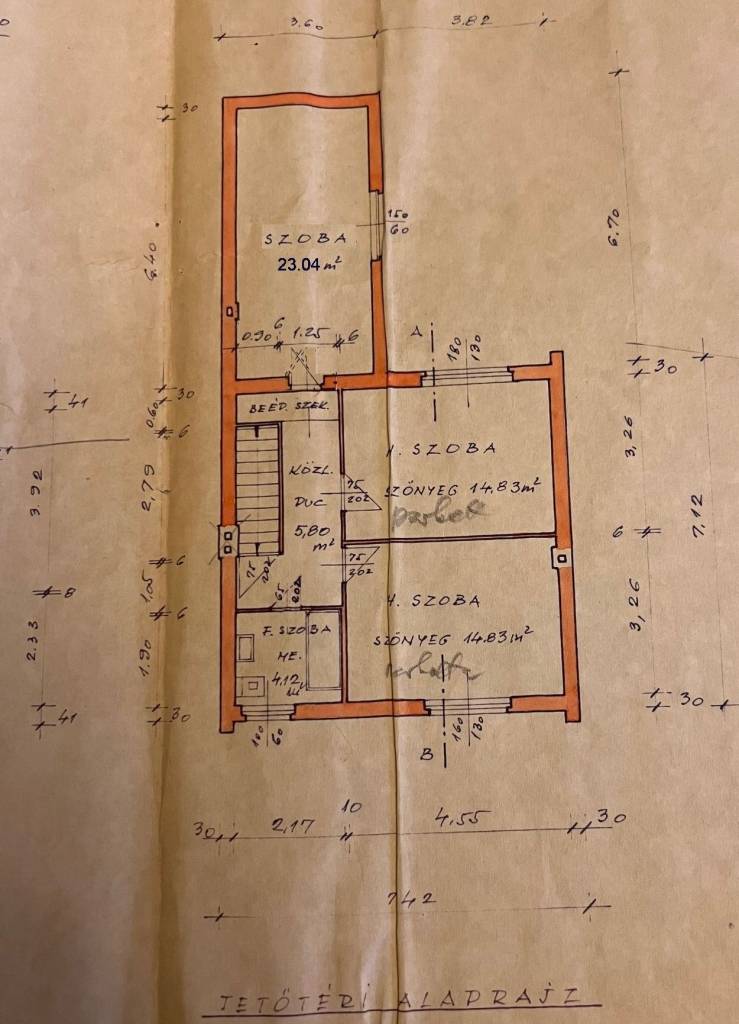 3.60
3.82
30
6.40
SZOBA
23.04 m²
150
60
6.70
0.90
6
1.25
6
A
180
130
30
0.60
6
BEÉP. SZEK.
41
3.92
2,79
KÖZL.
DUC
5,80
m²
75
202
1. SZOBA
SZŐNYEG 14.83 m²
3,26
30
6
7,12
75
202
75
202
65
202
6
1.05
6
8
SZOBA
SZŐNYEG 14.83 m²
3,26
F. SZOBA
ME.
4.12
m²
2.33
1.90
41
30
100
60
B
160
130
30
30
2,17
10
4,55
30
742
TETŐTÉRI ALAPRAJZ